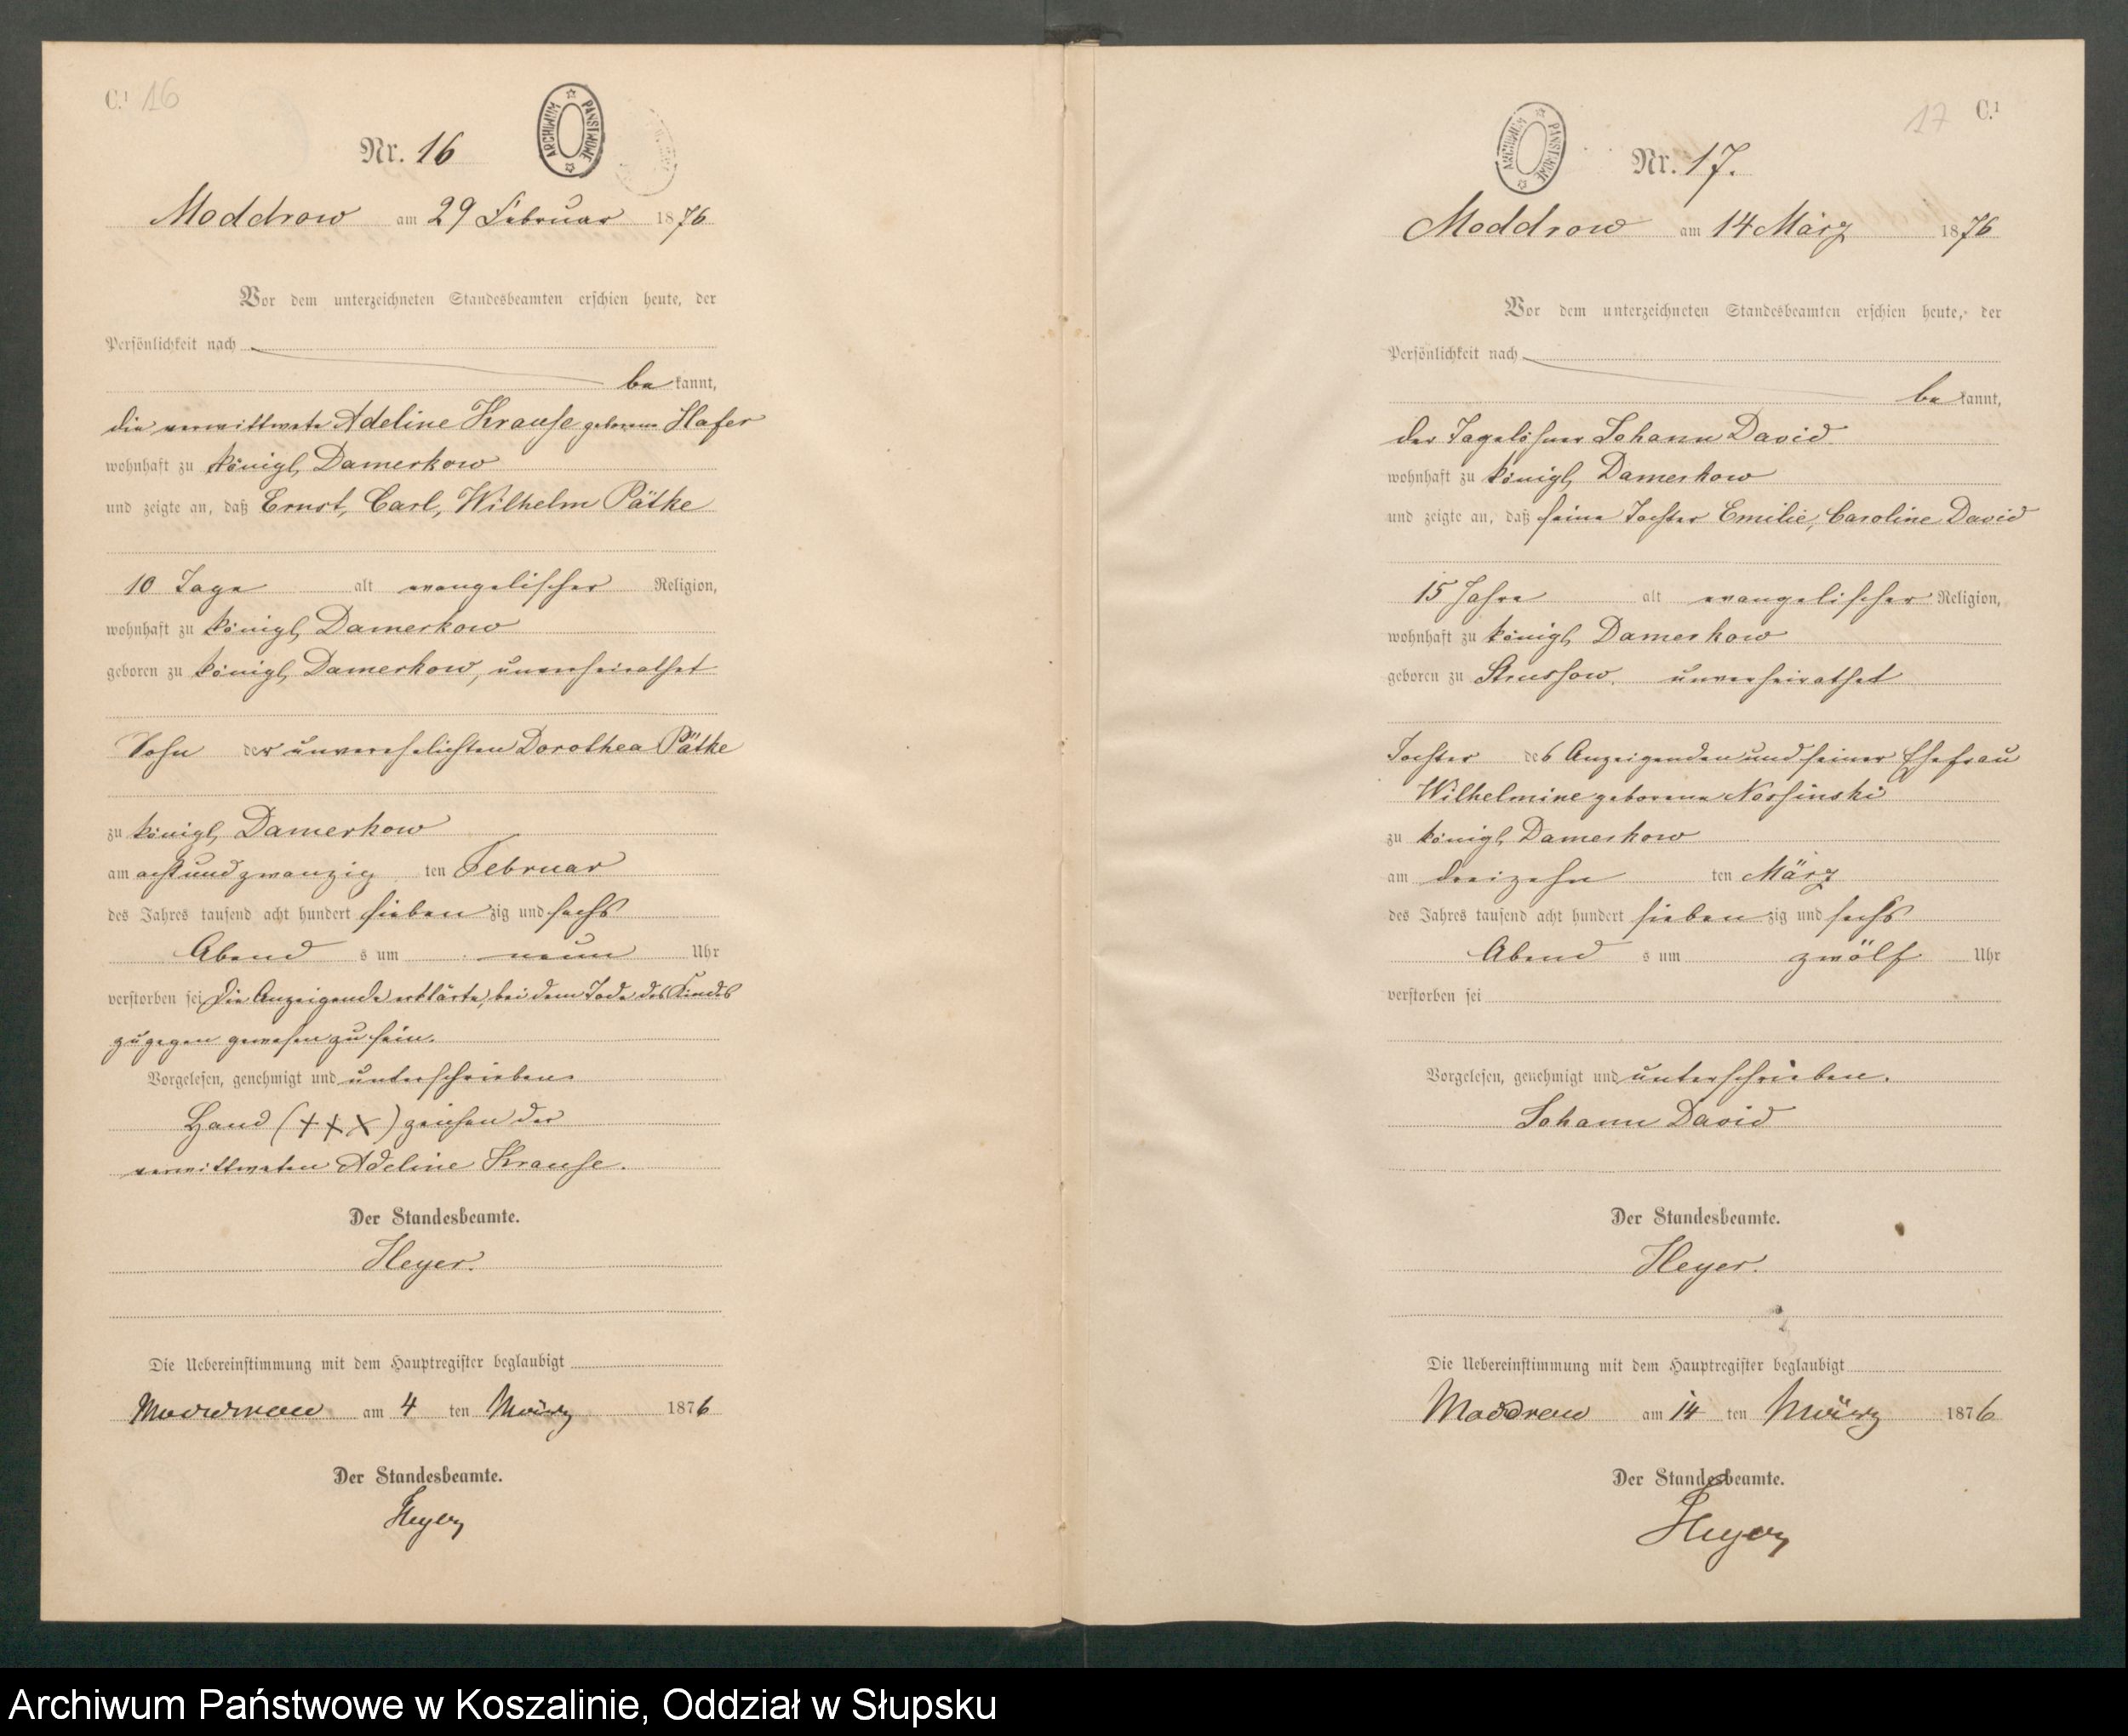 C.¹ 16
ARCHIWUM PAŃSTWOWE
Nr. 16
Moddrow am 29 Februar 1876
Vor dem unterzeichneten Standesbeamten erschien heute, der
Persönlichkeit nach
be kannt,
die verwittwete Adeline Krause geborene Hafer
wohnhaft zu königl. Damerkow
und zeigte an, daß Ernst, Carl, Wilhelm Pätke
10 Tage alt evangelischer Religion,
wohnhaft zu königl. Damerkow
geboren zu königl. Damerkow, unverheirathet
Sohn der unverehelichten Dorothea Pätke
zu königl. Damerkow
am acht und zwanzig ten Februar
des Jahres tausend acht hundert sieben zig und sechs
Abend s um neun Uhr
verstorben sei Die Anzeigende erklärte, bei dem Tode des Kindes
zugegen gewesen zu sein.
Vorgelesen, genehmigt und unterschrieben.
Hand (+++) zeichen der
verwittweten Adeline Krause.
Der Standesbeamte.
Heyer.
Die Uebereinstimmung mit dem Hauptregister beglaubigt
Moddrow am 4 ten März 1876
Der Standesbeamte.
Heyer
17 C.¹
ARCHIWUM PAŃSTWOWE
Nr. 17.
Moddrow am 14 März 1876
Vor dem unterzeichneten Standesbeamten erschien heute, der
Persönlichkeit nach
be kannt,
der Tagelöhner Johann David
wohnhaft zu königl. Damerkow
und zeigte an, daß seine Tochter Emilie, Caroline David
15 Jahre alt evangelischer Religion,
wohnhaft zu königl. Damerkow
geboren zu Strussow, unverheirathet
Tochter des Anzeigenden und seiner Ehefrau
Wilhelmine geborene Nossinski
zu königl. Damerkow
am dreizehn ten März
des Jahres tausend acht hundert sieben zig und sechs
Abend s um zwölf Uhr
verstorben sei
Vorgelesen, genehmigt und unterschrieben.
Johann David
Der Standesbeamte.
Heyer.
Die Uebereinstimmung mit dem Hauptregister beglaubigt
Moddrow am 14 ten März 1876
Der Standesbeamte.
Heyer
Archiwum Państwowe w Koszalinie, Oddział w Słupsku